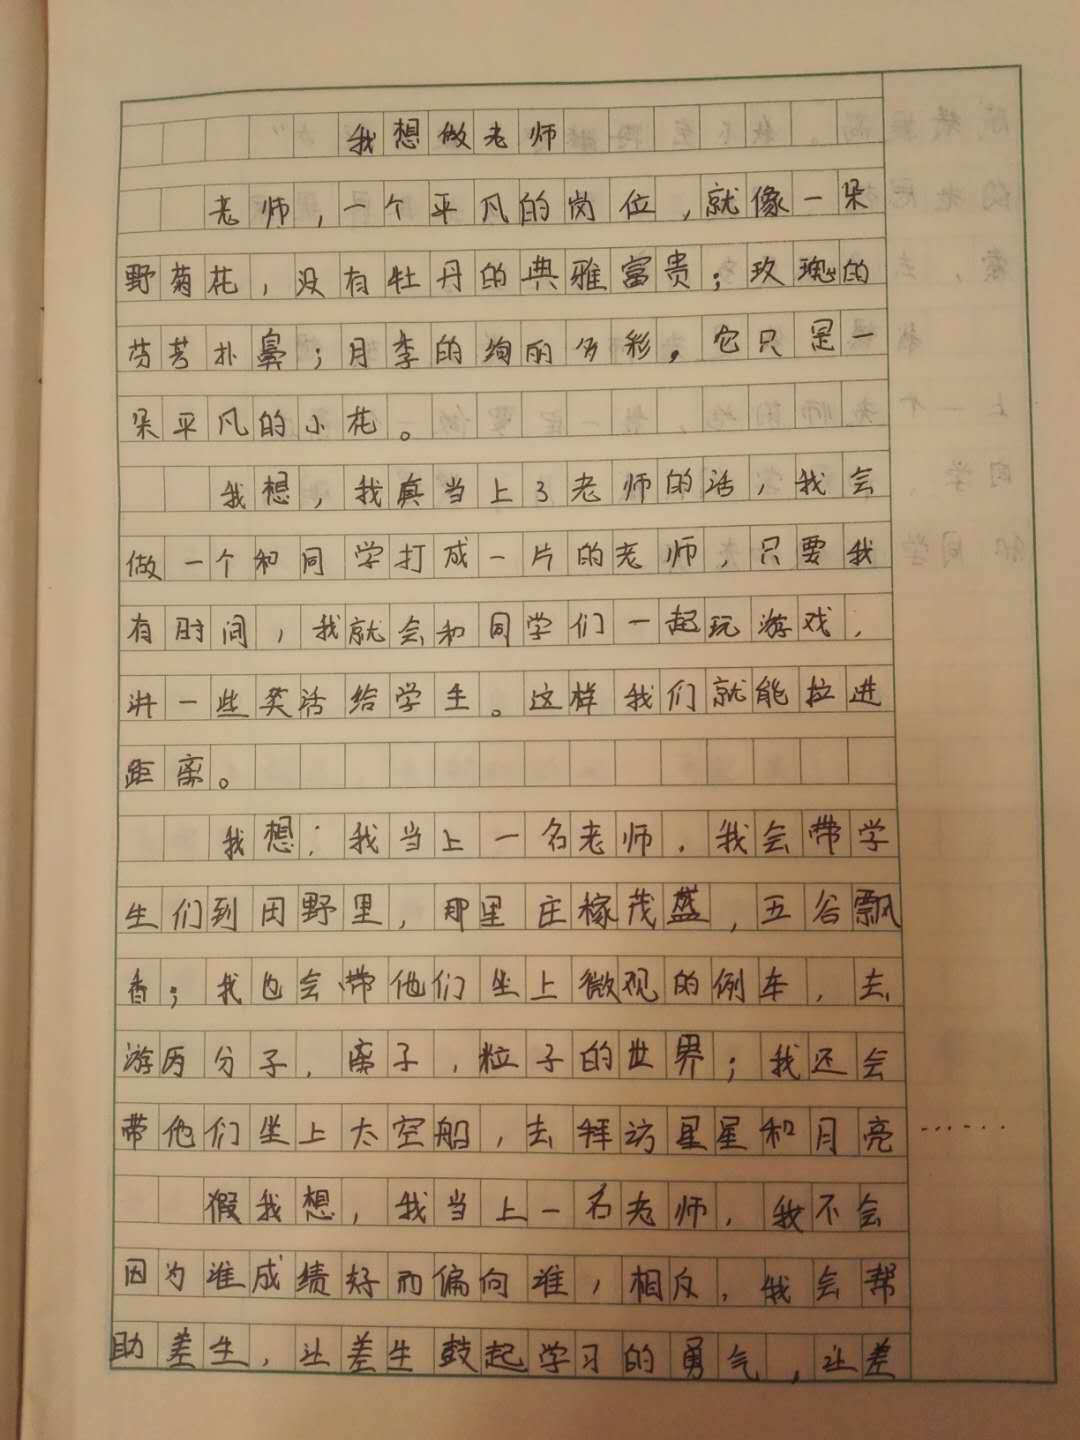 我想做老师
老师，一个平凡的岗位，就像一朵
野菊花，没有牡丹的典雅富贵；玫瑰的
芬芳扑鼻；月季的绚丽多彩，它只是一
朵平凡的小花。
我想，我真当上了老师的话，我会
做一个和同学打成一片的老师，只要我
有时间，我就会和同学们一起玩游戏，
讲一些笑话给学生。这样我们就能拉进
距离。
我想：我当上一名老师，我会带学
生们到田野里，那里庄稼茂盛，五谷飘
香；我也会带他们坐上微观的例车，去
游历分子，离子，粒子的世界；我还会
带他们坐上太空船，去拜访星星和月亮……
假我想，我当上一名老师，我不会
因为谁成绩好而偏向谁，相反，我会帮
助差生，让差生鼓起学习的勇气，让差